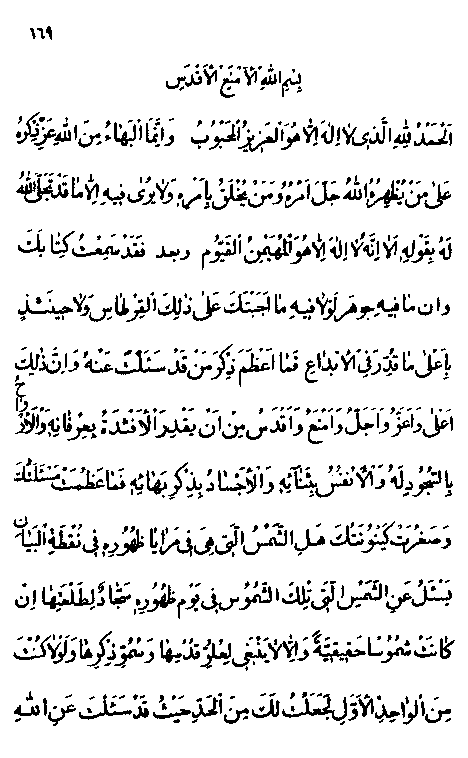 ١٦٩
بسم الله الأمنع الأقدس
الحمد لله الذى لا اله الا هو العزيز المحبوب وانما البهاء من الله عز ذكره
على من يظهره الله جل امره ومن يخلق بامره ولا يرى فيه الا ما قد تجلى الله
له بقوله الا انه لا اله الا هو المهيمن القيوم وبعد فقد سمعت كتابك
وان ما فيه جوهر لولا فيه ما اجبتك على ذلك القرطاس ولا حينئذ
باعلى ما قدر فى الابداع فما اعظم ذكر من قد سئلت عنه وان ذلك
اعلى واعز واجل وامنع واقدس من ان يقدر الافئدة بعرفانه والارواح
بالسجود له والانفس بثنائه والاجساد بذكر بهائه فما عظمت مسئلتك
وصغرت كينونتك هل الشمس التى هى فى مرايا ظهوره فى نقطة البيان
يسئل عن الشمس التى تلك الشموس فى يوم ظهوره سجاد لطلعتها ان
كانت شموسا حقيقية والا لا ينبغى لعلو قدسها وسمو ذكرها ولولا كنت
من الواحد الاول لجعلت لك من الحد حيث قد سئلت عن الله